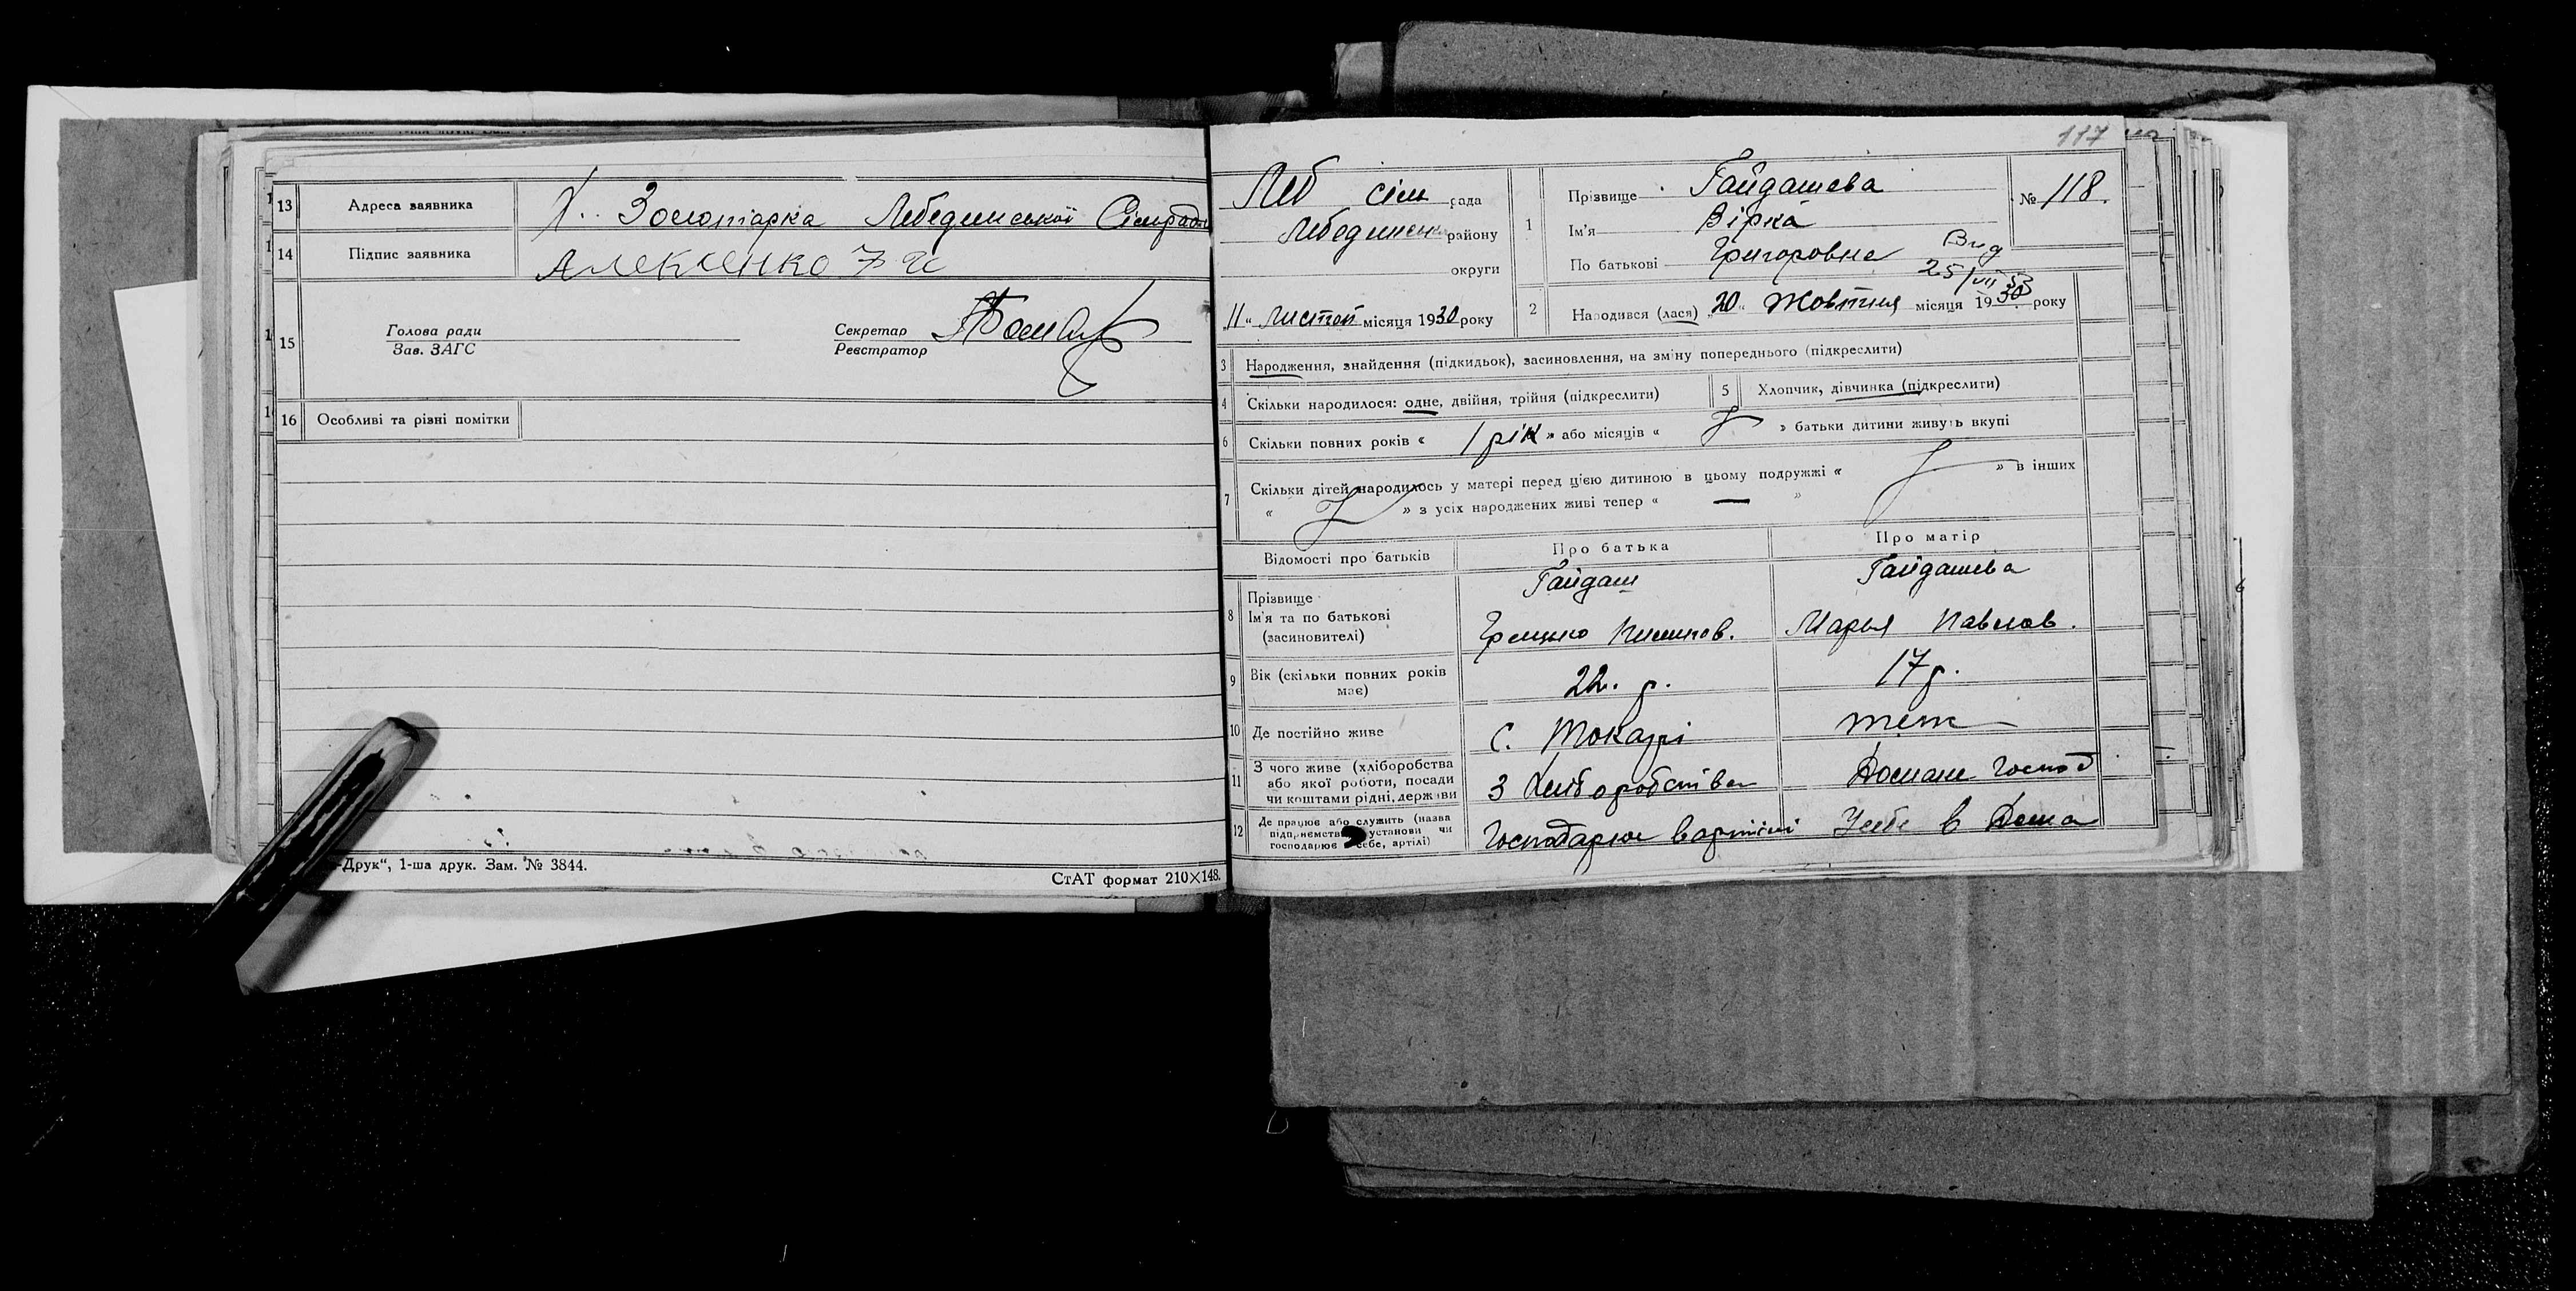 13 Адреса заявника Х. Золотарка Лебединської Сільради
14 Підпис заявника Алексенко
15 Голова ради
Зав. ЗАГС
Секретар
Реєстратор
16 Особливі та різні помітки
Друк“, 1-ша друк. Зам. № 3844.
СтАТ формат 210×148.
117
Леб сіль рада
Лебединськ району
округи
„11“ листоп місяця 1930 року
1 Прізвище Гайдашева
Ім'я Вірка
По батькові Григоровна
№ 118.
Вид
25/VII 53
2 Народився (лася) „20“ Жовтня місяця 1930 року
3 Народження, знайдення (підкидьок), засиновлення, на зміну попереднього (підкреслити)
4 Скільки народилося: одне, двійня, трійня (підкреслити)
5 Хлопчик, дівчинка (підкреслити)
6 Скільки повних років « 1 рік » або місяців « » батьки дитини живуть вкупі
7 Скільки дітей народилось у матері перед цією дитиною в цьому подружжі « » в інших
« » з усіх народжених живі тепер « — »
Відомості про батьків Про батька Про матір
8 Прізвище Гайдаш Гайдашева
Ім'я та по батькові
(засиновителі)
Грицько Марья Павлов.
9 Вік (скільки повних років
має)
22. р. 17 р.
10 Де постійно живе с. Токарі теж
11 З чого живе (хліборобства
або якої роботи, посади
чи коштами рідні, держави
З хліборобства Домашн господ
12 Де працює або служить (назва
підприємства установи чи
господарює себе, артілі)
Господарює в артілі У себе в Дома